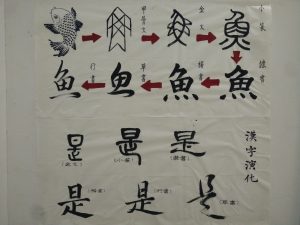 甲骨文 金文 小篆
魚
行書 草書 楷書 隸書
魚 魚 魚 魚
漢字演化
是 是 是
(金文) (小篆) (隸書)
是 是 是
(楷書) (行書) (草書)